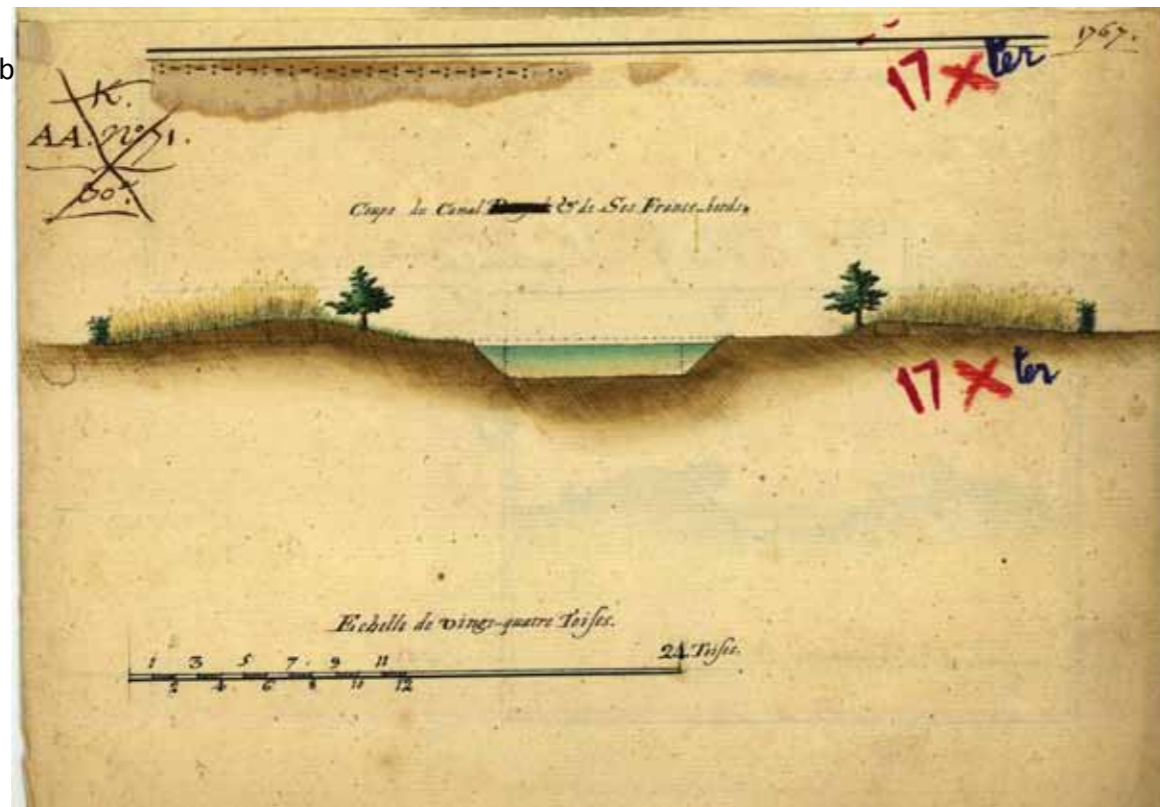 1767.
17 X ter
b
K.
AA. N° 1.
50.
Coupe du Canal & de Ses Francs-bords.
17 X ter
Echelle de vingt-quatre Toises.
24 Toises.
1 3 5 7 9 11
2 4 6 8 10 12